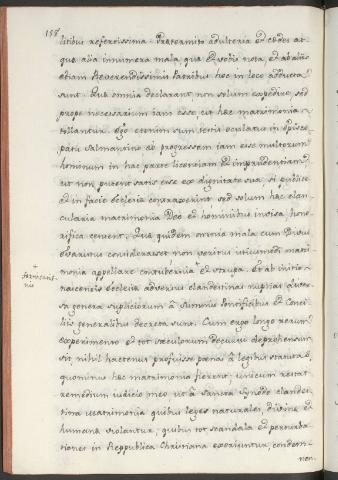 158
litibus refertissima. Praetermito adulteria et caedes at-
que alia innumera mala, quae et vobis nota, et ab aliis
etiam Reverendissimis Patribus hoc in loco adducta
sunt. Quae omnia declarant non solum expedire, sed
prope necessarium iam esse, ut haec matrimonia
tollantur. Ego etenim sum testis oculatus in Episco-
patu Salmantino eo progressam iam esse multorum
hominum in hac parte licentiam et impudentiam,
ut non putent satis esse ex dignitate sua, si publice
et in facie Ecclesiae contraxerint, sed solum haec clan-
cularia matrimonia Deo et hominibus invisa, hono-
rifica censent. Quae quidem omnia mala cum Divus
Evaristus consideraset non veritus
monia appellare contubernia + et stupra. Et ab initio
+ fornicationis
nascentis Ecclesiae adversus clandestinas nuptias
sa genera supliciorum a Summis Pontificibus et Conci-
liis generalibus decreta sunt. Cum ergo longo rerum
experimento et tot saeculorum decursu deprehensum
sit, nihil hactenus profuisse paenas a legibus statutas,
quominus haec matrimonia fierent, unicum restat
remedium iudicio meo, ut a Sancta Synodo clandes-
tina matrimonia quibus leges naturales, divinae et
humanae violantur, quibus tot scandala et perturba-
tiones in Reppublica Christiana exoriuntur, condem-
nen